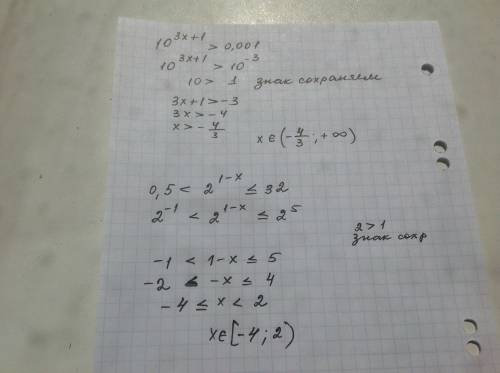 10^{3x+1} > 0,001
10^{3x+1} > 10^{-3}
10 > 1 знак сохраняем
3x+1 > -3
3x > -4
x > -4/3 x ∈ (-4/3 ; +∞)
0,5 < 2^{1-x} ≤ 32
2^{-1} < 2^{1-x} ≤ 2^5
2 > 1
знак сохр
-1 < 1-x ≤ 5
-2 < -x ≤ 4
-4 ≤ x < 2
x ∈ [-4 ; 2)